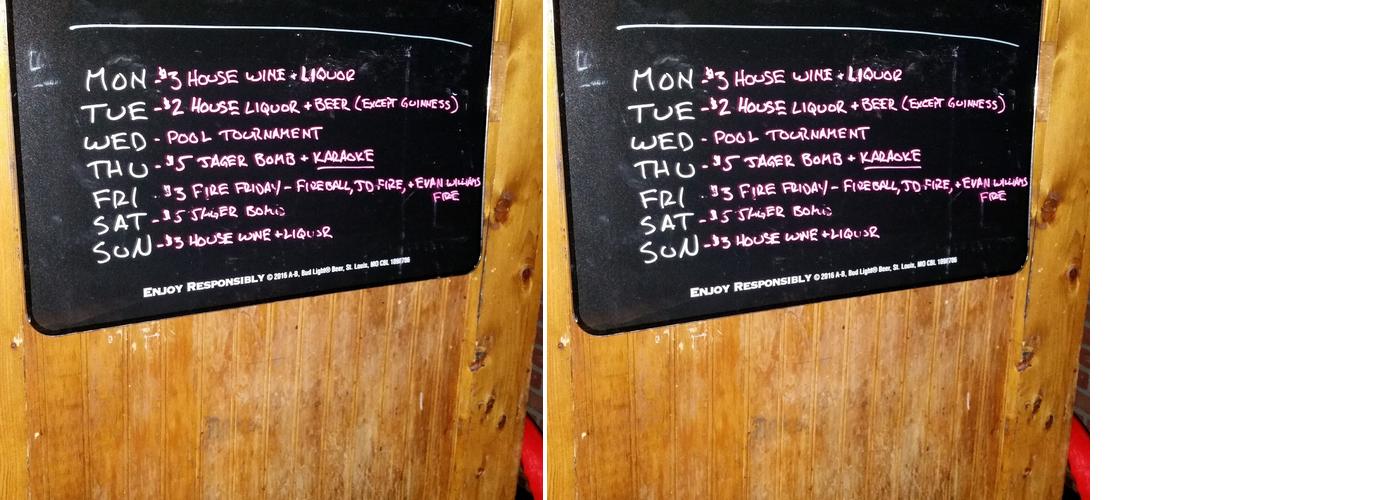 MON -$3 HOUSE WINE + LIQUOR
TUE -$2 HOUSE LIQUOR + BEER (EXCEPT GUINNESS)
WED - POOL TOURNAMENT
THU -$5 JAGER BOMB + KARAOKE
FRI - $3 FIRE FRIDAY - FIREBALL, JD FIRE, + EVAN WILLIAMS
FIRE
SAT -$5 JAGER BOMB
SUN -$3 HOUSE WINE + LIQUOR
ENJOY RESPONSIBLY © 2016 A-B, Bud Light® Beer, St. Louis, MO CBL 1898706
MON -$3 HOUSE WINE + LIQUOR
TUE -$2 HOUSE LIQUOR + BEER (EXCEPT GUINNESS)
WED - POOL TOURNAMENT
THU -$5 JAGER BOMB + KARAOKE
FRI - $3 FIRE FRIDAY - FIREBALL, JD FIRE, + EVAN WILLIAMS
FIRE
SAT -$5 JAGER BOMB
SUN -$3 HOUSE WINE + LIQUOR
ENJOY RESPONSIBLY © 2016 A-B, Bud Light® Beer, St. Louis, MO CBL 1898706